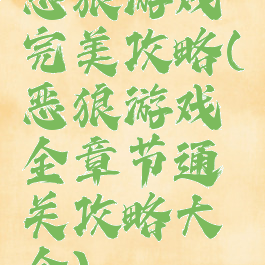 恶狼游戏
完美攻略(
恶狼游戏
全章节通
关攻略大
全)